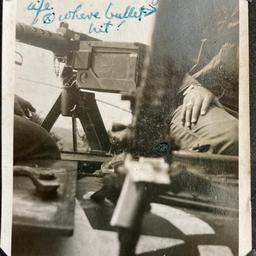 life
Ⓧ where bullets
hit